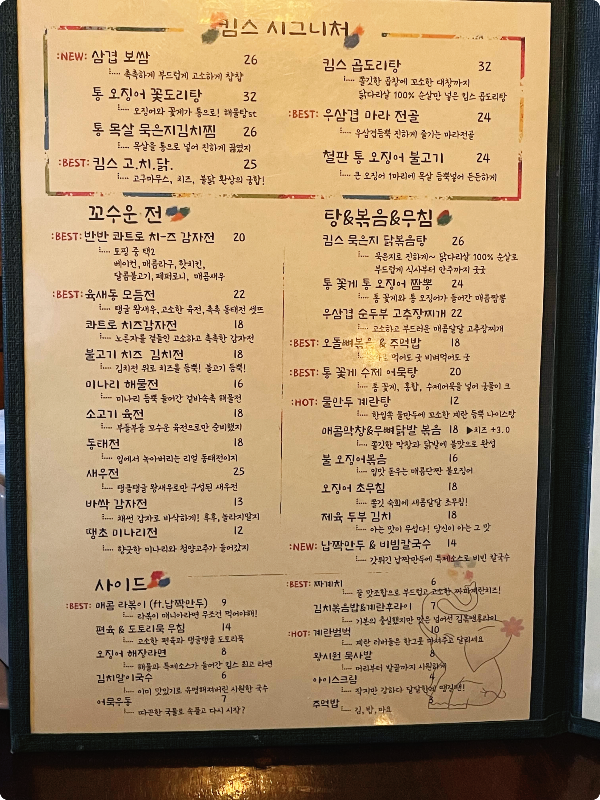 킴스 시그니처
:NEW: 삼겹 보쌈 26
촉촉하게 부드럽게 고소하게 찹찹
통 오징어 꽃도리탕 32
오징어와 꽃게가 통으로! 해물탕st
통 목살 묵은지김치찜 26
목살을 통으로 넣어 진하게 끓였지
:BEST: 킴스 고.치.닭. 25
고구마무스, 치즈, 불닭 환상의 궁합!
킴스 곱도리탕 32
쫄깃한 곱창에 꼬소한 대창까지
닭다리살 100% 순살만 넣은 킴스 곱도리탕
:BEST: 우삼겹 마라 전골 24
우삼겹듬뿍 진하게 즐기는 마라전골
철판 통 오징어 불고기 24
큰 오징어 1마리에 목살 듬뿍넣어 든든하게
꼬수운 전
:BEST: 반반 콰트로 치-즈 감자전 20
토핑 중 택2
베이컨, 매콤라구, 핫치킨,
달콤불고기, 페퍼로니, 매콤새우
:BEST: 육새동 모듬전 22
탱글 왕새우, 고소한 육전, 촉촉 동태전 셋뜨
콰트로 치즈감자전 18
노른자를 곁들인 고소하고 촉촉한 감자전
불고기 치즈 김치전 18
김치전 위로 치즈를 듬뿍! 불고기 듬뿍!
미나리 해물전 16
미나리 듬뿍 들어간 겉바속촉 해물전
소고기 육전 18
부들부들 꼬수운 육전으로만 준비했지
동태전 18
입에서 녹아버리는 리얼 동태전이지
새우전 25
탱글탱글 왕새우로만 구성된 새우전
바싹 감자전 13
채썬 감자로 바삭하게! 후후, 놀라지말지
땡초 미나리전 12
향긋한 미나리와 청양고추가 들어갔지
탕&볶음&무침
킴스 묵은지 닭볶음탕 26
묵은지로 진하게~ 닭다리살 100% 순살로
부드럽게 식사부터 안주까지 굿굿
통 꽃게 통 오징어 짬뽕 24
통 꽃게와 통 오징어가 들어간 매콤짬뽕
우삼겹 순두부 고추장찌개 22
고소하고 부드러운 매콤달달 고추장찌개
:BEST: 오돌뼈볶음 & 주먹밥 18
따로 먹어도 굿 비벼먹어도 굿
:BEST: 통 꽃게 수제 어묵탕 20
통 꽃게, 홍합, 수제어묵을 넣어 국물이 크
:HOT: 물만두 계란탕 12
한입쏙 물만두에 꼬소한 계란 듬뿍 나이스탕
매콤막창&무뼈닭발 볶음 18 ▶치즈 +3.0
쫄깃한 막창과 닭발에 불맛으로 완성
불 오징어볶음 16
입맛 돋우는 매콤단짠 불오징어
오징어 초무침 18
쫄깃 숙회에 새콤달달 초무침!
제육 두부 김치 18
아는 맛이 무섭다! 당신이 아는 그 맛
:NEW: 납짝만두 & 비빔칼국수 14
갓튀긴 납짝만두에 특제소스로 비빈 칼국수
사이드
:BEST: 매콤 라볶이 (ft.납짝만두) 9
라볶이 매니아라면 무조건 먹어야해!
편육 & 도토리묵 무침 14
고소한 편육과 탱글탱글 도토리묵
오징어 해장라면 8
해물과 특제소스가 들어간 킴스 최고 라면
김치말이국수 6
이미 맛있기로 유명해져버린 시원한 국수
어묵우동 7
따끈한 국물로 속풀고 다시 시작?
:BEST: 짜계치 6
꿀 맛조합으로 부드럽고 고소한 짜파계란치즈!
김치볶음밥&계란후라이 7
기본의 충실했지만 맛은 넘어선 김볶밥후라이
:HOT: 계란범벅 10
계란 러버들은 한그릇 마셔주고 달리세요
왕시원 묵사발 8
머리부터 발끝까지 시원하게
아이스크림 4
작지만 강하다 달달한게 땡길땐!
주먹밥 3
김, 밥, 마요